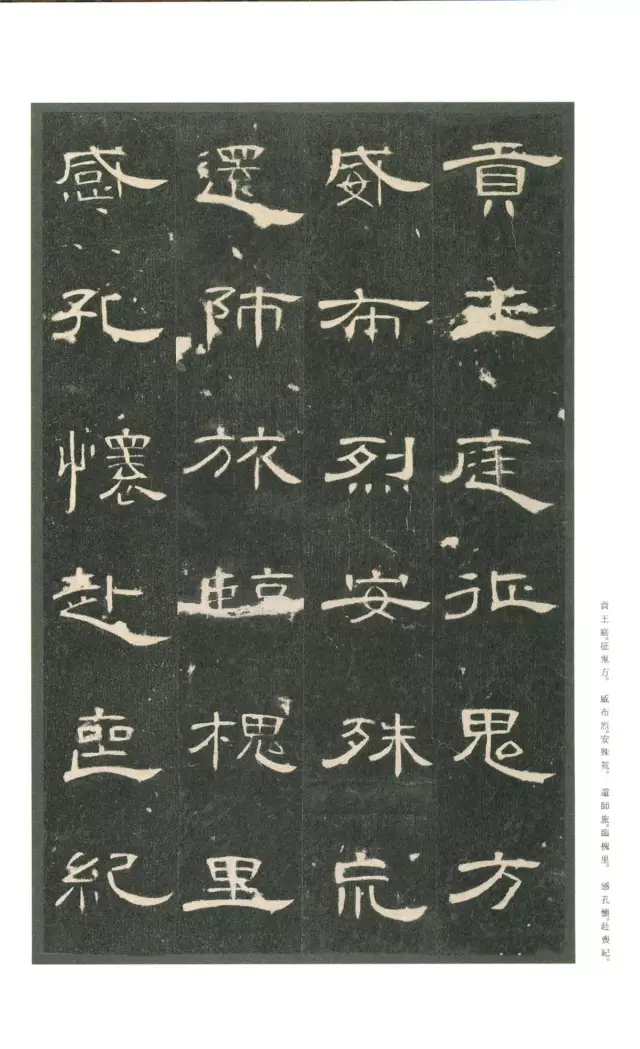 貢王庭征鬼方
威布烈安殊巟
還師旅臨槐里
感孔懷赴喪紀
貢王庭。征鬼方。 威布烈。安殊荒。 還師旅。臨槐里。 感孔懷。赴喪紀。